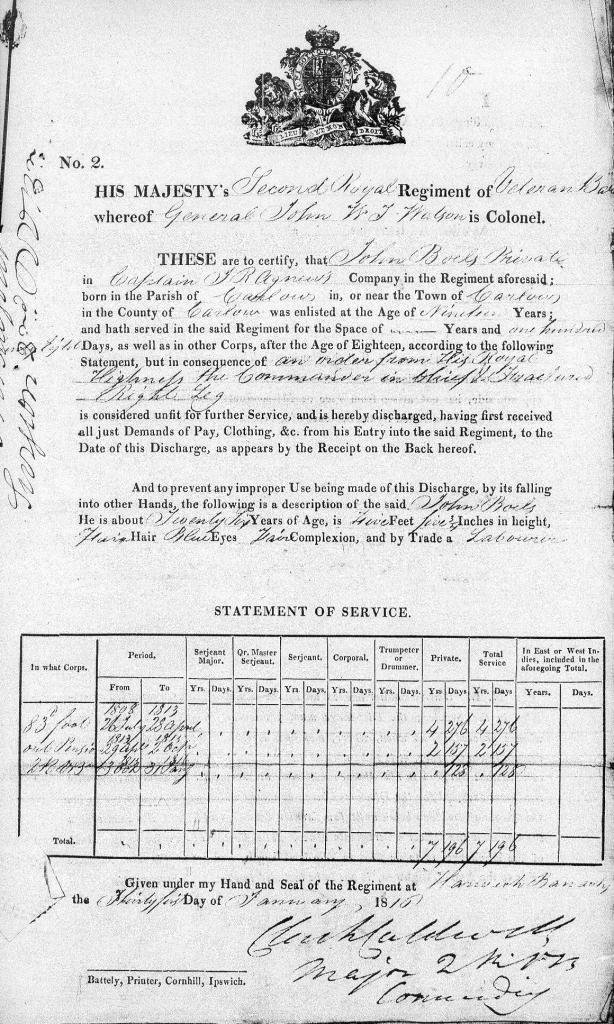 DIEU ET MON DROIT
10
No. 2.
HIS MAJESTY's Second Royal Regiment of Veteran
whereof General John W T Watson is Colonel.
THESE are to certify, that John Boels Private
in Captain J R Agnew's Company in the Regiment aforesaid;
born in the Parish of Carlow in, or near the Town of Carlow
in the County of Carlow was enlisted at the Age of Nineteen Years;
and hath served in the said Regiment for the Space of Years and one hundred
Days, as well as in other Corps, after the Age of Eighteen, according to the following
Statement, but in consequence of an order from His Royal
Highness the Commander in Chief & Fractured
Right Leg
is considered unfit for further Service, and is hereby discharged, having first received
all just Demands of Pay, Clothing, &c. from his Entry into the said Regiment, to the
Date of this Discharge, as appears by the Receipt on the Back hereof.
And to prevent any improper Use being made of this Discharge, by its falling
into other Hands, the following is a description of the said John Boels
He is about Twenty Years of Age, is five Feet Inches in height,
Fair Hair Blue Eyes Fair Complexion, and by Trade a Labourer
STATEMENT OF SERVICE.
In what Corps. Period. Serjeant Major. Qr. Master Serjeant. Serjeant. Corporal. Trumpeter or Drummer. Private. Total Service In East or West Indies, included in the aforegoing Total.
From To Yrs. Days. Yrs. Days. Yrs. Days. Yrs. Days. Yrs. Days. Yrs. Days. Yrs. Days. Years. Days.
1808 1813
83d foot 26 July 28 April 4 276 4 276
out Pensr 29 apl 2 Octr 2 157 2 157
31 Jany
Total. 7 196 7 196
Given under my Hand and Seal of the Regiment at Harwich Barracks
the Thirty first Day of January 1816
Caldwell
Major 2
Commanding
Battely, Printer, Cornhill, Ipswich.